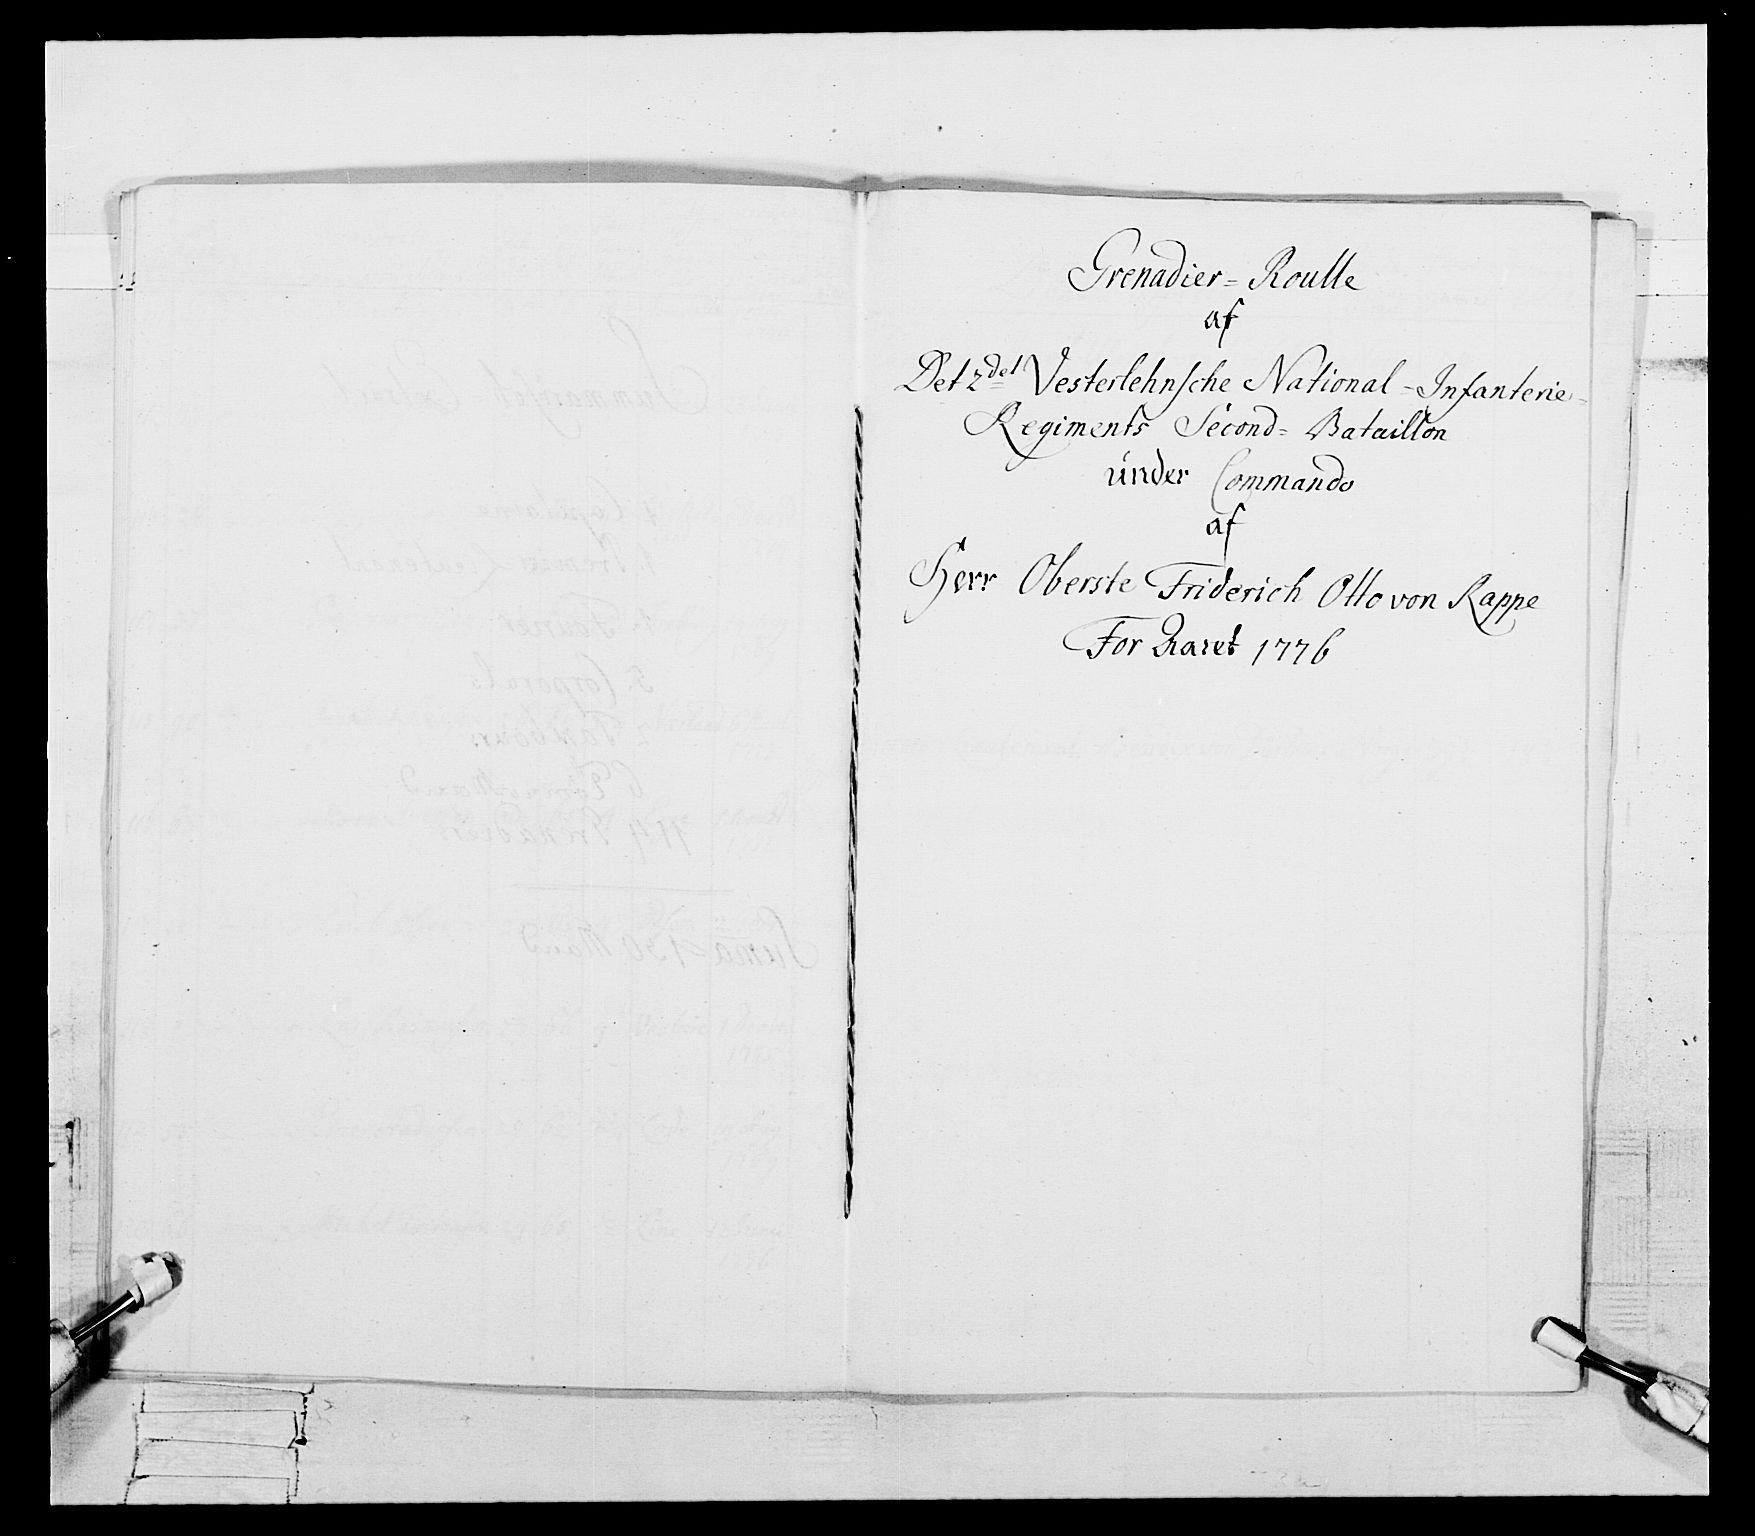 Grenadier= Roulle
af
Det 2det Vesterlehnsche National=Infanterie=
Regiments Second= Bataillon
under Commando
af
Herr Oberste Friderich Otto von Rappe
For Aaret 1776